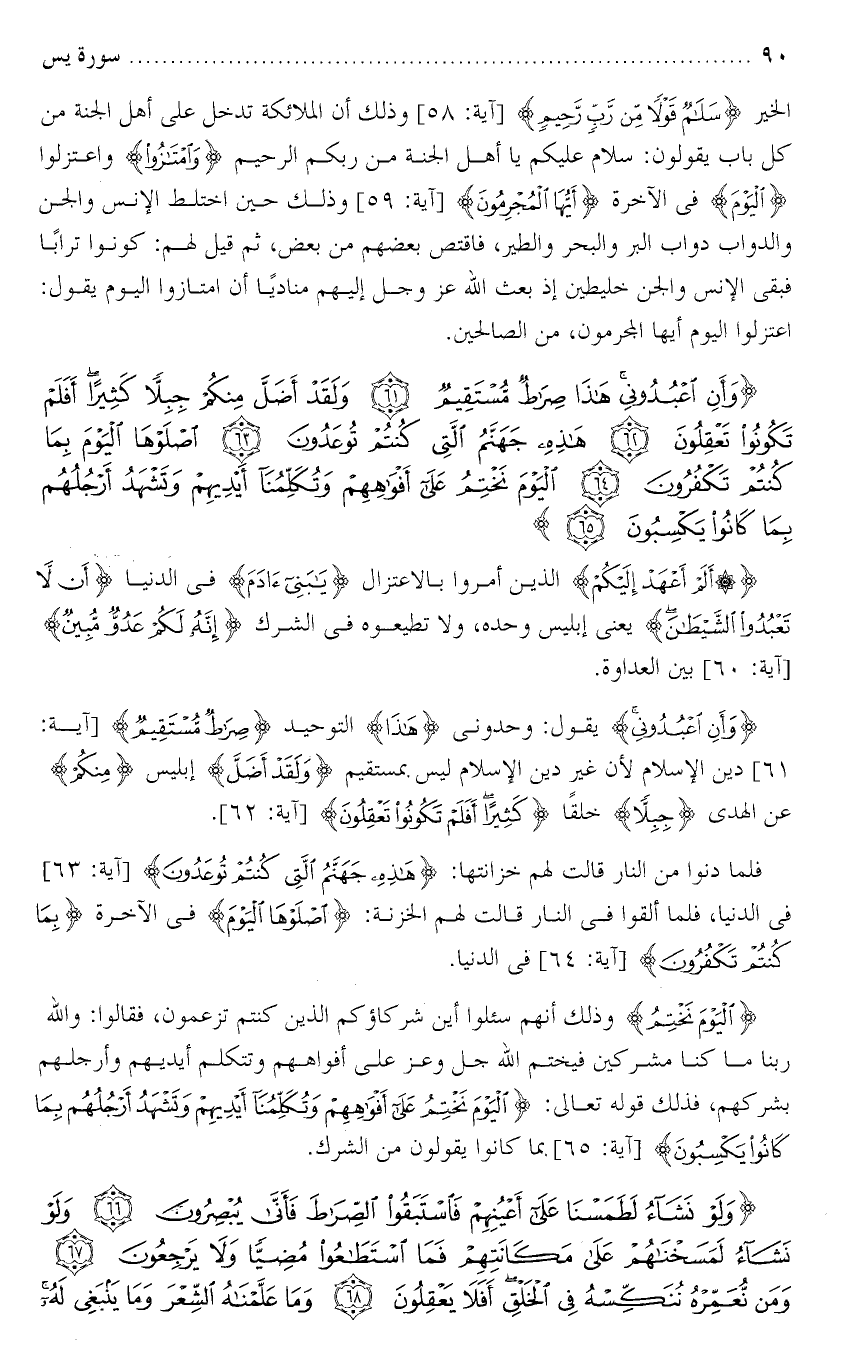 ٩٠ ........................................ سورة يس
الخير ﴿سَلَٰمٌ قَوْلًا مِّن رَّبٍّ رَّحِيمٍ﴾ [آية: ٥٨] وذلك أن الملائكة تدخل على أهل الجنة من
كل باب يقولون: سلام عليكم يا أهل الجنة من ربكم الرحيم ﴿وَٱمْتَٰزُوا۟﴾ واعتزلوا
﴿ٱلْيَوْمَ﴾ فى الآخرة ﴿أَيُّهَا ٱلْمُجْرِمُونَ﴾ [آية: ٥٩] وذلك حين اختلط الإنس والجن
والدواب دواب البر والبحر والطير، فاقتص بعضهم من بعض، ثم قيل لهم: كونوا ترابًا
فبقى الإنس والجن خليطين إذ بعث الله عز وجل إليهم مناديًا أن امتازوا اليوم يقول:
اعتزلوا اليوم أيها المجرمون، من الصالحين.
﴿وَأَنِ ٱعْبُدُونِى ۚ هَٰذَا صِرَٰطٌ مُّسْتَقِيمٌ ٦١ وَلَقَدْ أَضَلَّ مِنكُمْ جِبِلًّا كَثِيرًا ۖ أَفَلَمْ
تَكُونُوا۟ تَعْقِلُونَ ٦٢ هَٰذِهِۦ جَهَنَّمُ ٱلَّتِى كُنتُمْ تُوعَدُونَ ٦٣ ٱصْلَوْهَا ٱلْيَوْمَ بِمَا
كُنتُمْ تَكْفُرُونَ ٦٤ ٱلْيَوْمَ نَخْتِمُ عَلَىٰٓ أَفْوَٰهِهِمْ وَتُكَلِّمُنَآ أَيْدِيهِمْ وَتَشْهَدُ أَرْجُلُهُم
بِمَا كَانُوا۟ يَكْسِبُونَ ٦٥ ﴾
﴿۞ أَلَمْ أَعْهَدْ إِلَيْكُمْ﴾ الذين أمروا بالاعتزال ﴿يَٰبَنِىٓ ءَادَمَ﴾ فى الدنيا ﴿أَن لَّا
تَعْبُدُوا۟ ٱلشَّيْطَٰنَ ۖ﴾ يعنى إبليس وحده، ولا تطيعوه فى الشرك ﴿إِنَّهُۥ لَكُمْ عَدُوٌّ مُّبِينٌ﴾
[آية: ٦٠] بين العداوة.
﴿وَأَنِ ٱعْبُدُونِى ۚ﴾ يقول: وحدونى ﴿هَٰذَا﴾ التوحيد ﴿صِرَٰطٌ مُّسْتَقِيمٌ﴾ [آية:
٦١] دين الإسلام لأن غير دين الإسلام ليس بمستقيم ﴿وَلَقَدْ أَضَلَّ﴾ إبليس ﴿مِنكُمْ﴾
عن الهدى ﴿جِبِلًّا﴾ خلقًا ﴿كَثِيرًا ۖ أَفَلَمْ تَكُونُوا۟ تَعْقِلُونَ﴾ [آية: ٦٢].
فلما دنوا من النار قالت لهم خزانتها: ﴿هَٰذِهِۦ جَهَنَّمُ ٱلَّتِى كُنتُمْ تُوعَدُونَ﴾ [آية: ٦٣]
فى الدنيا، فلما ألقوا فى النار قالت لهم الخزنة: ﴿ٱصْلَوْهَا ٱلْيَوْمَ﴾ فى الآخرة ﴿بِمَا
كُنتُمْ تَكْفُرُونَ﴾ [آية: ٦٤] فى الدنيا.
﴿ٱلْيَوْمَ نَخْتِمُ﴾ وذلك أنهم سئلوا أين شركاؤكم الذين كنتم تزعمون، فقالوا: والله
ربنا ما كنا مشركين فيختم الله جل وعز على أفواههم وتتكلم أيديهم وأرجلهم
بشركهم، فذلك قوله تعالى: ﴿ٱلْيَوْمَ نَخْتِمُ عَلَىٰٓ أَفْوَٰهِهِمْ وَتُكَلِّمُنَآ أَيْدِيهِمْ وَتَشْهَدُ أَرْجُلُهُم بِمَا
كَانُوا۟ يَكْسِبُونَ﴾ [آية: ٦٥] بما كانوا يقولون من الشرك.
﴿وَلَوْ نَشَآءُ لَطَمَسْنَا عَلَىٰٓ أَعْيُنِهِمْ فَٱسْتَبَقُوا۟ ٱلصِّرَٰطَ فَأَنَّىٰ يُبْصِرُونَ ٦٦ وَلَوْ
نَشَآءُ لَمَسَخْنَٰهُمْ عَلَىٰ مَكَانَتِهِمْ فَمَا ٱسْتَطَٰعُوا۟ مُضِيًّا وَلَا يَرْجِعُونَ ٦٧
وَمَن نُّعَمِّرْهُ نُنَكِّسْهُ فِى ٱلْخَلْقِ ۖ أَفَلَا يَعْقِلُونَ ٦٨ وَمَا عَلَّمْنَٰهُ ٱلشِّعْرَ وَمَا يَنۢبَغِى لَهُۥٓ ۚ